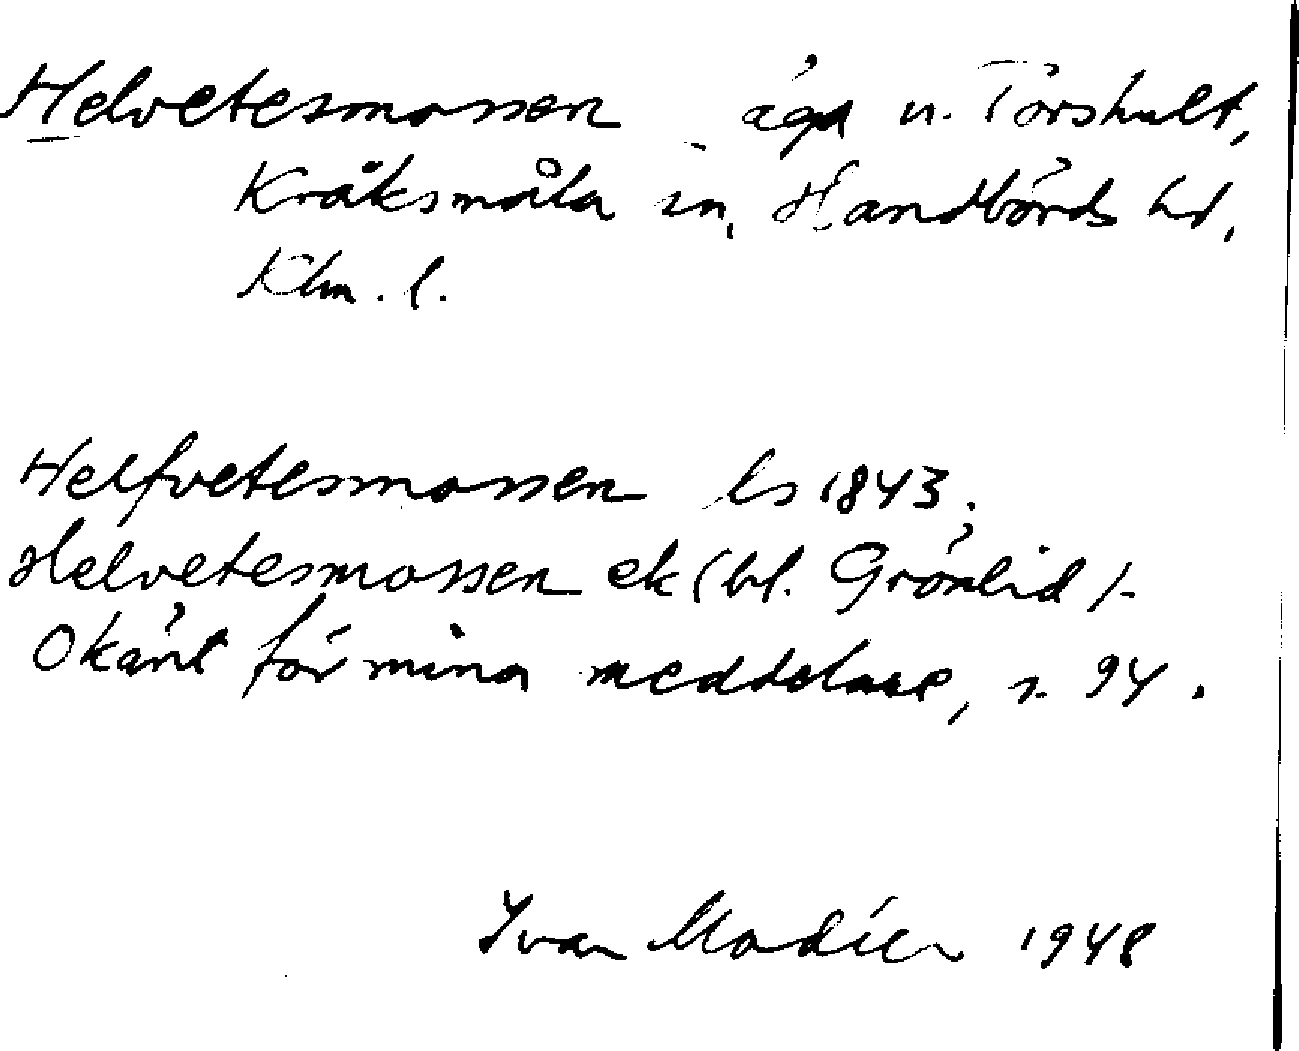 Helvetesmossen äga u. Törshult,
Kråksmåla sn, Handbörds hd,
Klm. l.
Helfvetesmossen ls 1843.
Helvetesmossen ek (bl. Grönlid).
Okänt för mina meddelare, s. 94.
Ivar Modéer 1948